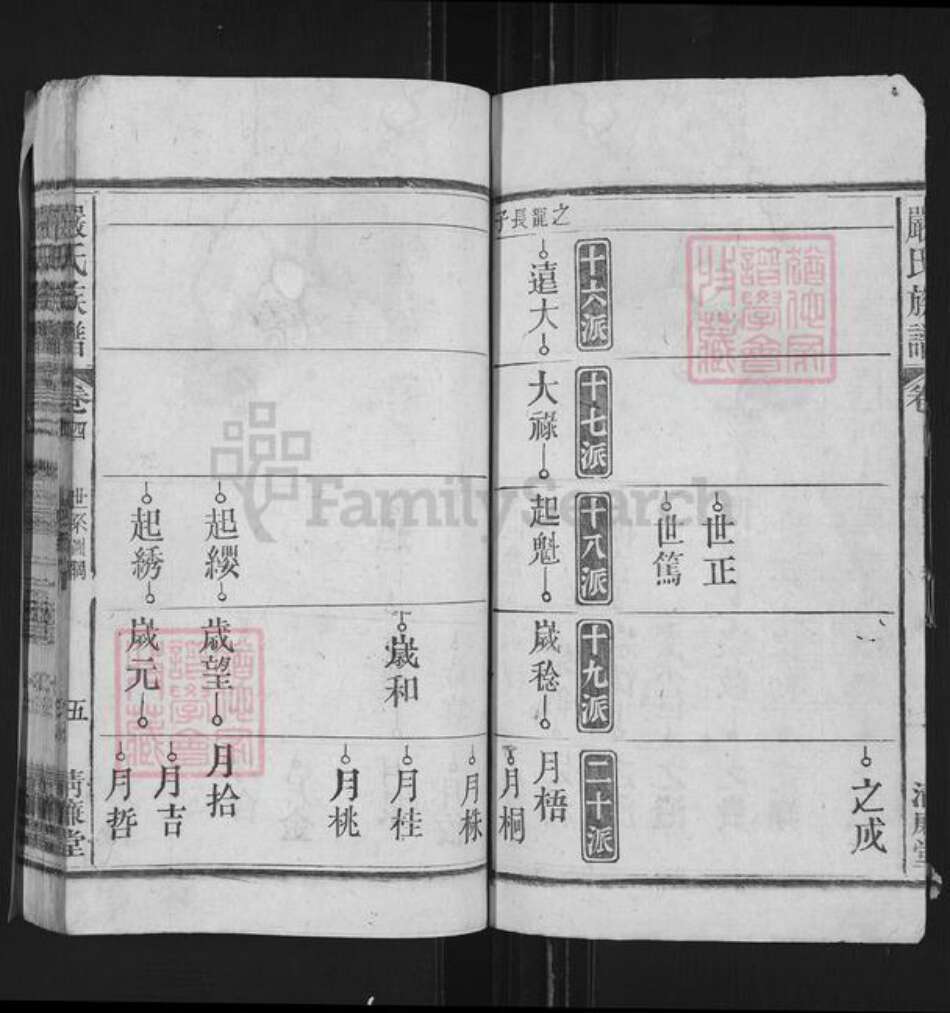 嚴氏族譜 卷
清廉堂
之成
世正
世篤
十六派
十七派
十八派
十九派
二十派
之龍長子
遠大
大祿
起魁
歲稔
月梧
月桐
月株
歲和
月桂
月桃
起纓
歲望
月拾
起綉
歲元
月吉
月哲
嚴氏族譜
卷四
世系
五
清廉堂
譜學會
收藏
譜學會
收藏
FamilySearch